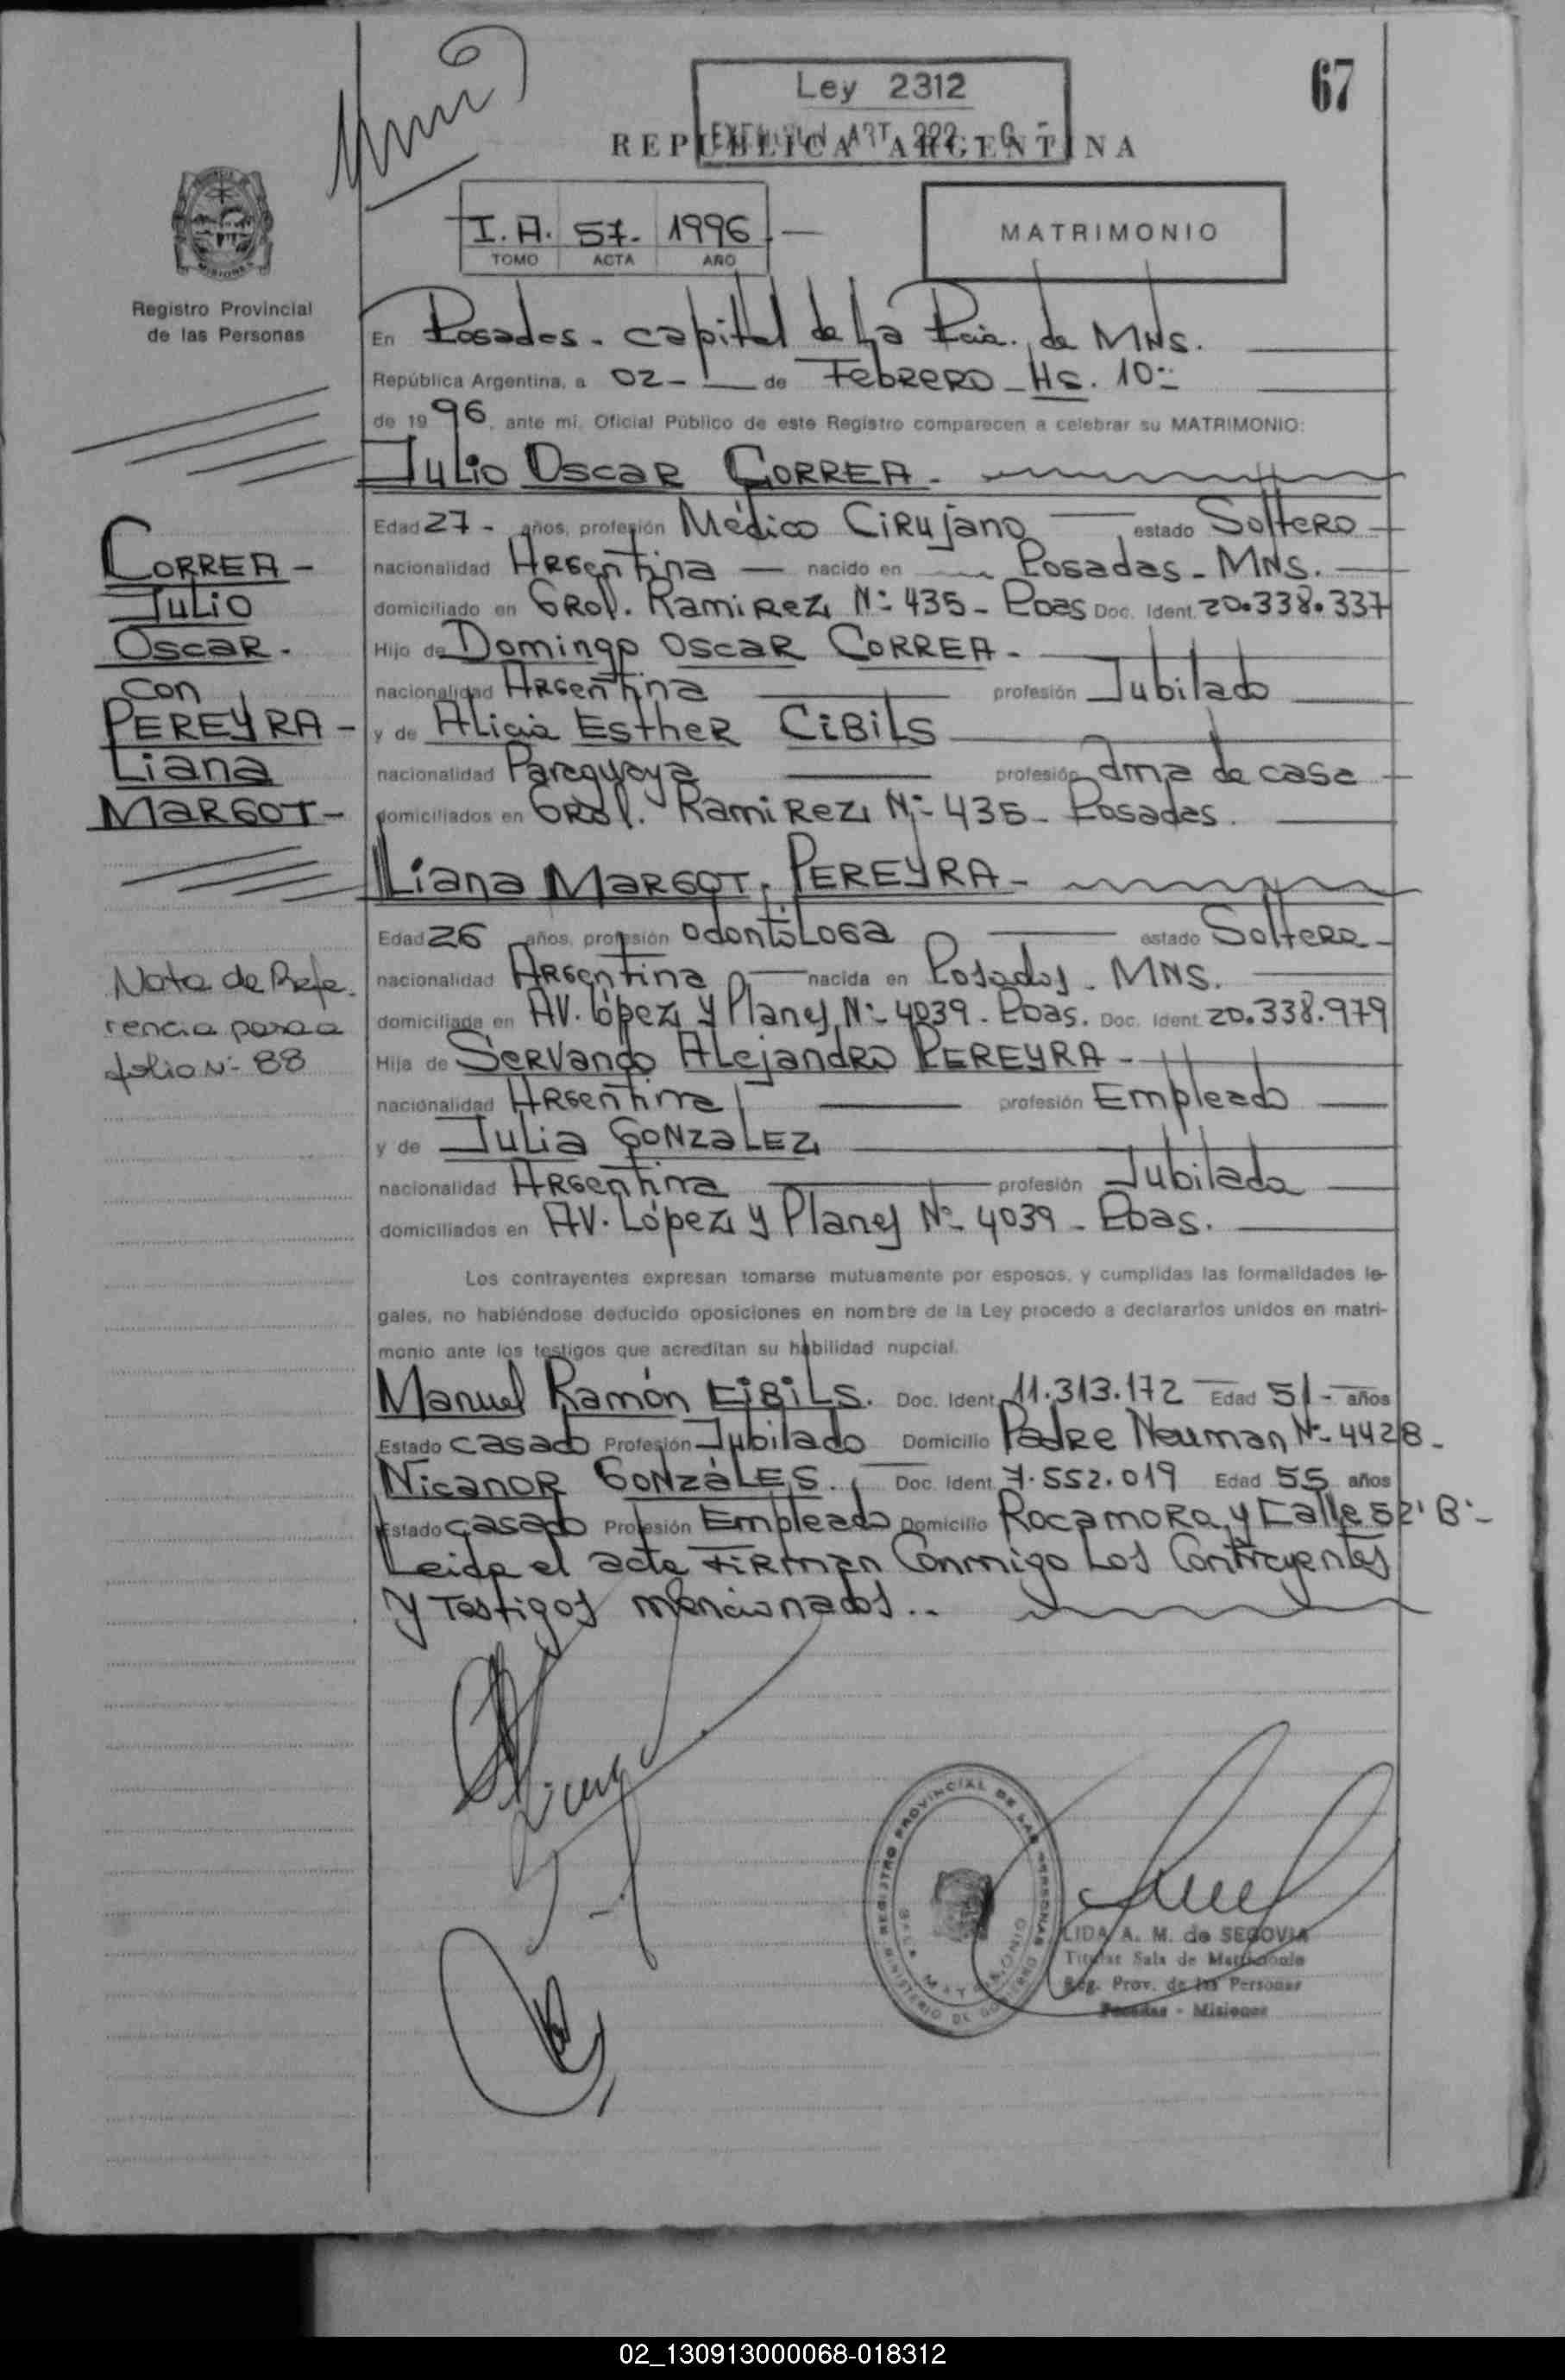 67
Ley 2312
ART. 222
REPUBLICA ARGENTINA
I.A. 57- 1996
TOMO ACTA AÑO
MATRIMONIO
MISIONES
Registro Provincial
de las Personas
En Posadas. capital de La Pcia. de MNS.
República Argentina, a 02- de Febrero - Hs. 10:-
de 1996, ante mí, Oficial Público de este Registro comparecen a celebrar su MATRIMONIO:
Julio Oscar CORREA.
Edad 27- años, profesión Médico Cirujano estado Soltero
nacionalidad Argentina nacido en Posadas - MNS.
domiciliado en Grol. Ramirez N:- 435- Pdas Doc. Ident. 20.338.337
Hijo de Domingo Oscar CORREA-
nacionalidad Argentina profesión Jubilado
y de Alicia Esther CIBILS
nacionalidad Paraguaya profesión Ama de casa
domiciliados en Grol. Ramirez N:- 435- Posadas.
Liana Margot. PEREYRA-
Edad 26 años, profesión odontóloga estado Soltera-
nacionalidad Argentina nacida en Posadas. MNS.
domiciliada en AV. López y Planes N:- 4039- Pdas. Doc. Ident. 20.338.979
Hija de Servando Alejandro PEREYRA-
nacionalidad Argentina profesión Empleado
y de Julia GONZALEZ
nacionalidad Argentina profesión Jubilada
domiciliados en AV. López y Planes N:- 4039- Pdas.
Los contrayentes expresan tomarse mutuamente por esposos, y cumplidas las formalidades le-
gales, no habiéndose deducido oposiciones en nombre de la Ley procedo a declararlos unidos en matri-
monio ante los testigos que acreditan su habilidad nupcial.
Manuel Ramón CIBILS. Doc. Ident. 11.313.172 Edad 51- años
Estado casado Profesión Jubilado Domicilio Padre Neuman N:- 4428-
Nicanor GONZÁLES. Doc. Ident. 7.552.019 Edad 55 años
Estado casado Profesión Empleado Domicilio Rocamora y Calle 52' B'-
Leida el acta firman Conmigo Los Contrayentes
y Testigos mencionados..
CORREA-
Julio
Oscar-
con
PEREYRA-
Liana
MARGOT-
Nota de Refe.
rencia pasa a
folio N:- 88
REGISTRO PROVINCIAL DE LAS PERSONAS
MINISTERIO DE GOBIERNO
SALA MATRIMONIO
LIDA A. M. de SEGOVIA
Titular Sala de Matrimonio
Reg. Prov. de las Personas
Posadas - Misiones
02_130913000068-018312